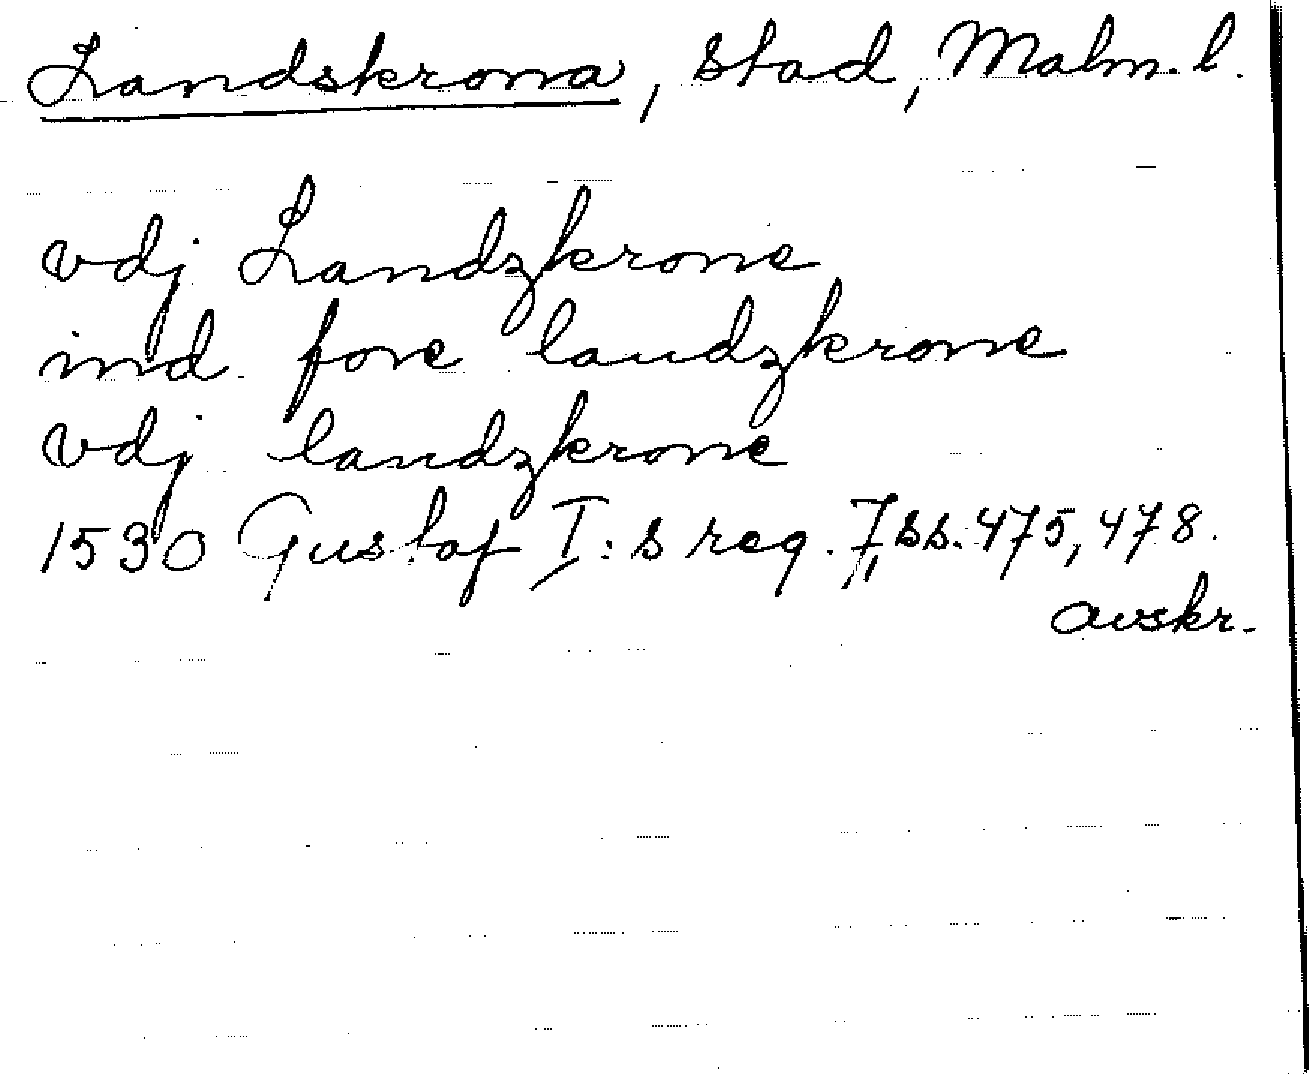 Landskrona, stad, Malm. l.
vdj Landzkrone
ind fore landzkrone
vdj landzkrone
1530 Gustaf I:s reg. 7, ss. 475, 478.
avskr.